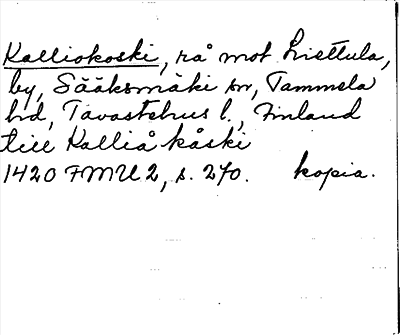 Kalliokoski, rå mot Liettula,
by, Sääksmäki sn, Tammela
hd, Tavastehus l., Finland
till Kalliå kåski
1420 FMU 2, s. 270. kopia.